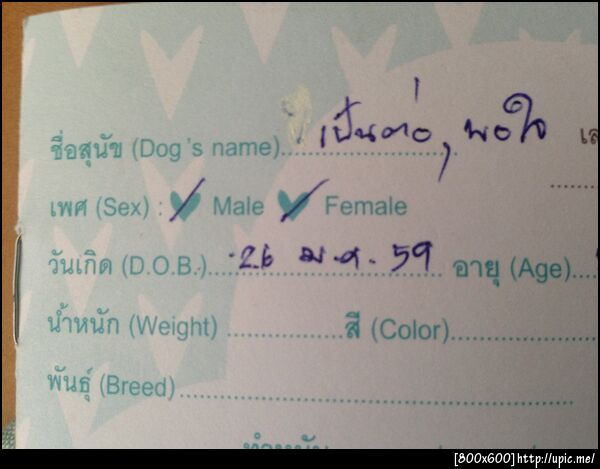 ชื่อสุนัข (Dog's name) เป็นต่อ, พอใจ
เพศ (Sex) : Male Female
วันเกิด (D.O.B.) 26 ม.ค. 59 อายุ (Age)
น้ำหนัก (Weight) สี (Color)
พันธุ์ (Breed)
[800x600]http://upic.me/